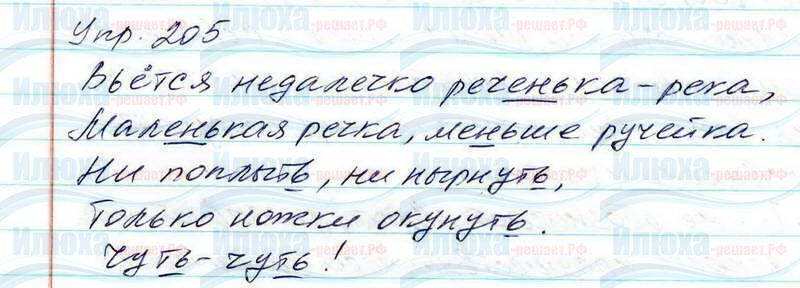 Упр. 205
Вьётся недалечко реченька - река,
Маленькая речка, меньше ручейка.
Ни поплыть, ни нырнуть,
Только ножки окунуть.
Чуть-чуть!